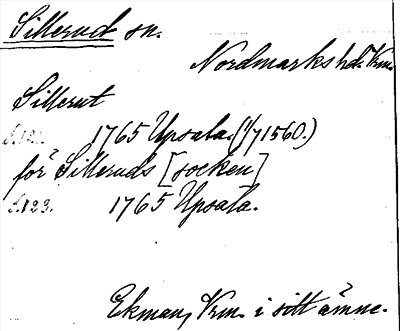 Sillerud sn.
Nordmarks hd. Vrm.
Sillerut
1765 Upsala. (1/7 1560.)
för Silleruds [socken]
s.123. 1765 Upsala.
Ekman, Vrm. i sitt ämne.